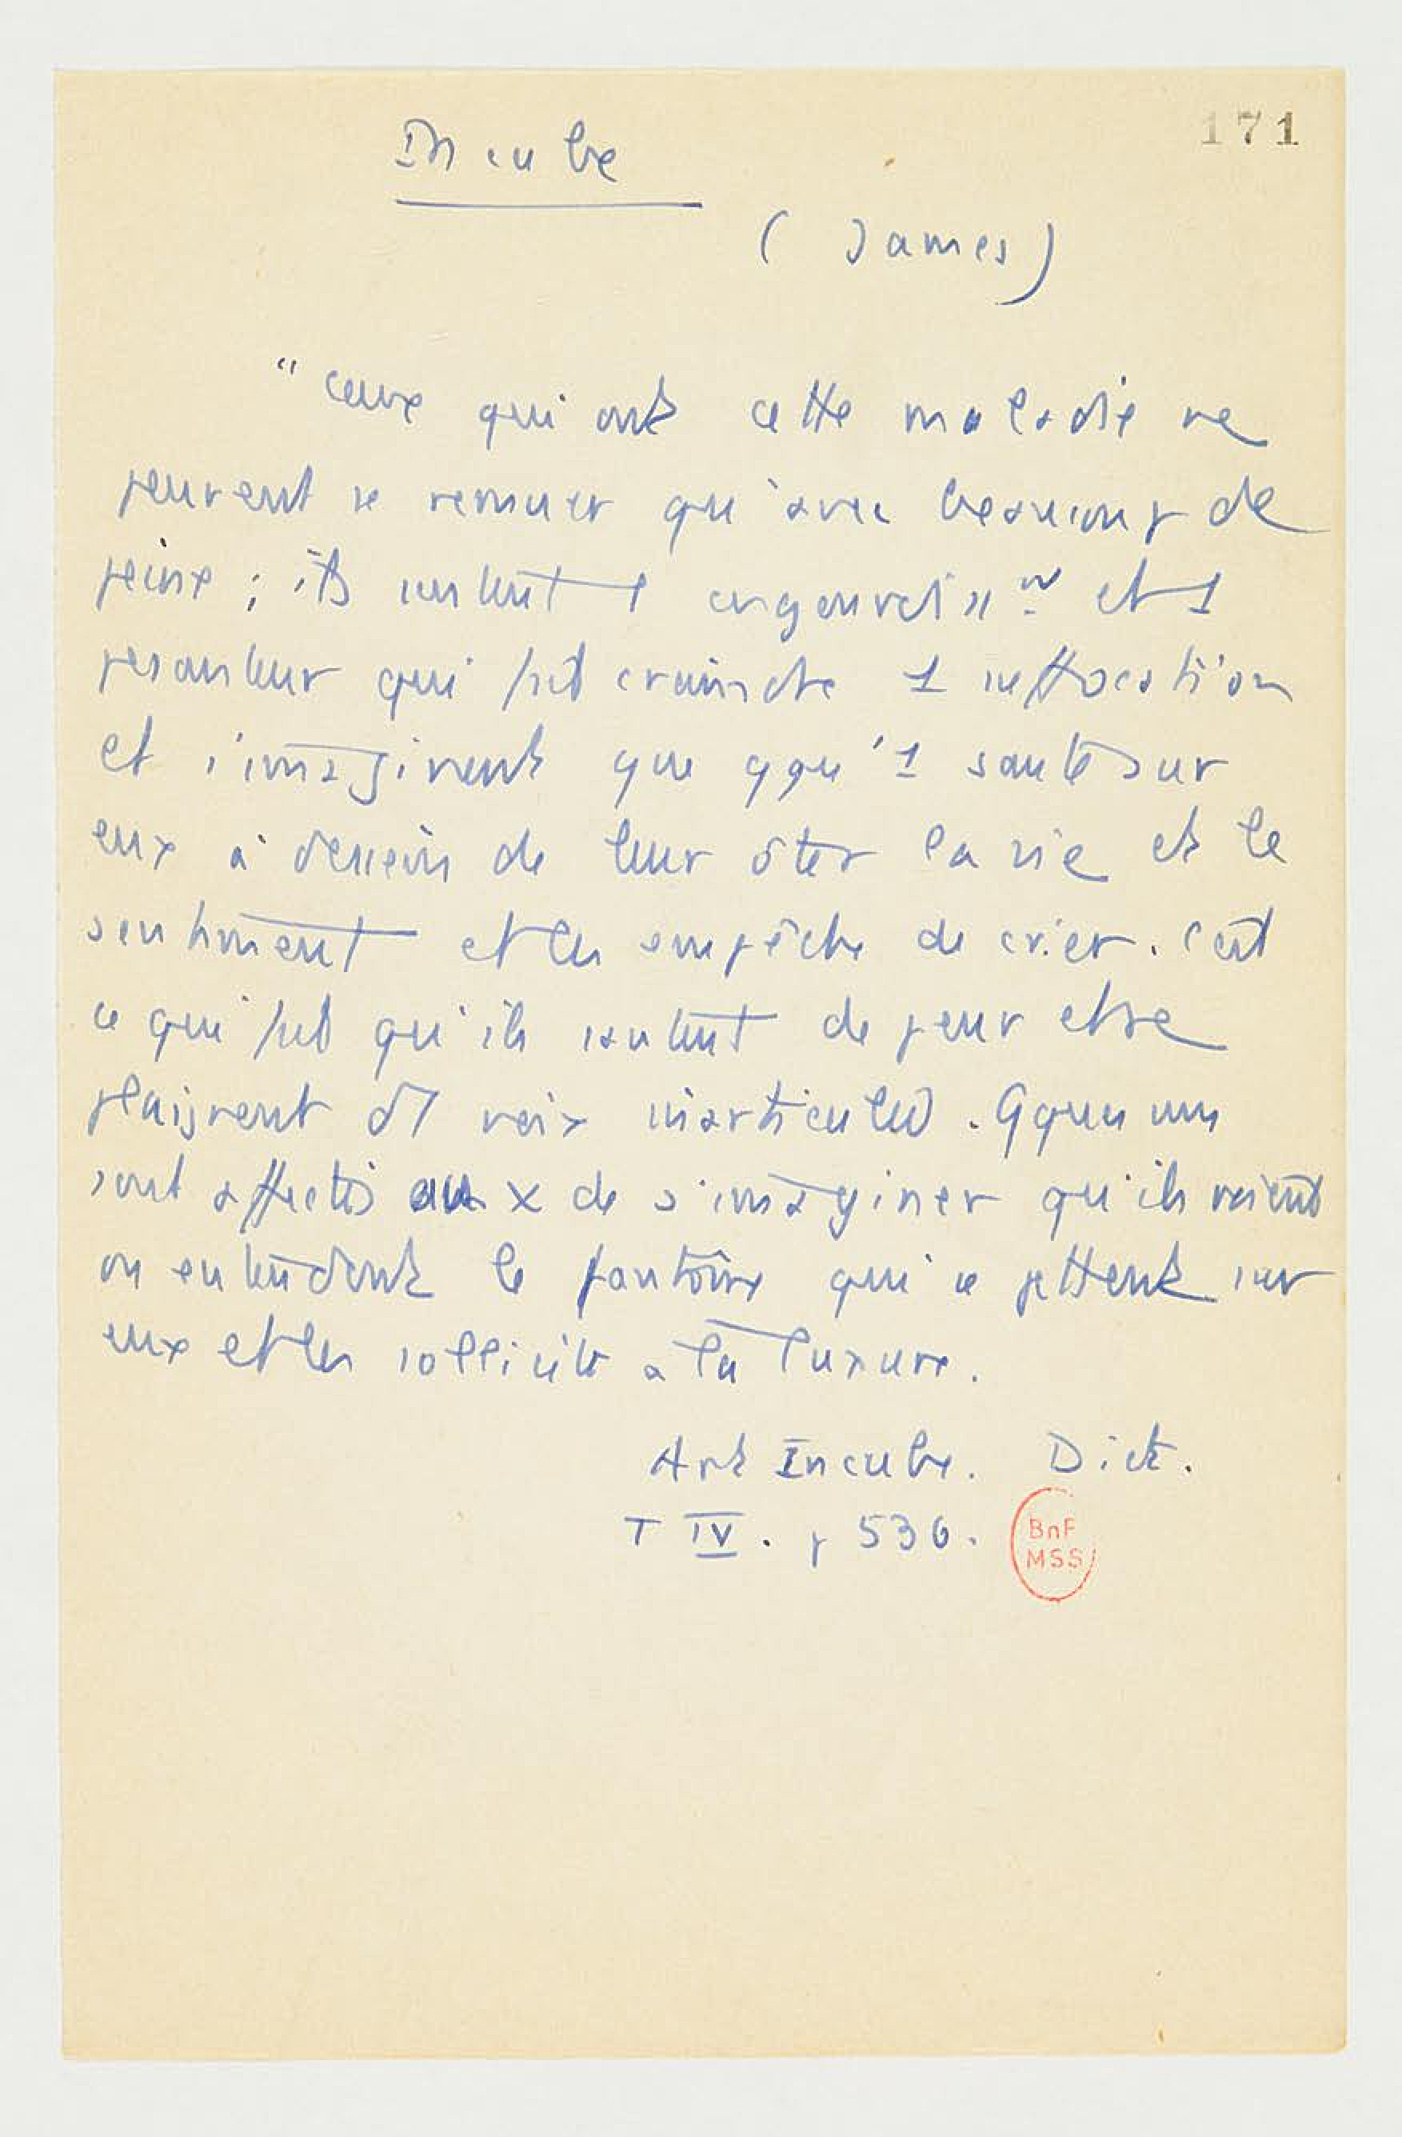 171
Incube
( James )
" ceux qui ont cette maladie ne
peuvent se remuer qu'avec beaucoup de
peine ; ils sentent 1 engourdissmt et 1
pesanteur qui fait craindre 1 suffocation
et s'imaginent que qqu'1 saute sur
eux à dessein de leur ôter la vie et le
sentiment et les empêche de crier. C'est
ce qui fait qu'ils sautent de peur et se
plaignent d'1 voix inarticulée. Qques uns
sont affectés au x de s'imaginer qu'ils voient
ou entendent le fantôme qui se jettent sur
eux et les sollicite a la luxure.
Art Incube. Dict.
T IV. p 536.
BnF
MSS